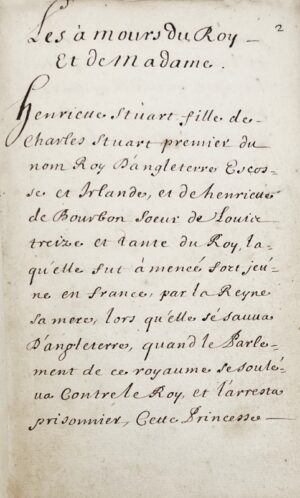 2
Les à mours du Roy —
Et de Madame.
Henriette Stuart fille de
Charles Stuart premier du
nom Roy D'angleterre Escos-
se et Irlande, et de henriette
de Bourbon Soeur de Louis
treize et tante du Roy, la-
qu'elle fut à menée fort jeu-
ne en france, par la Reyne
sa mere, lors qu'elle se sauva
D'angleterre, quand le Parle-
ment de ce royaume se soulé-
va Contre le Roy, et l'arresta
prisonnier, Cette Princesse —